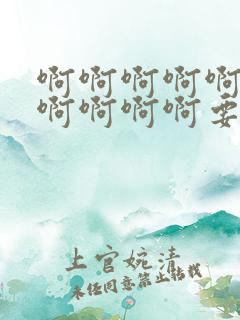 啊啊啊啊啊
啊啊啊啊要
上官婉清
未经同意禁止转载